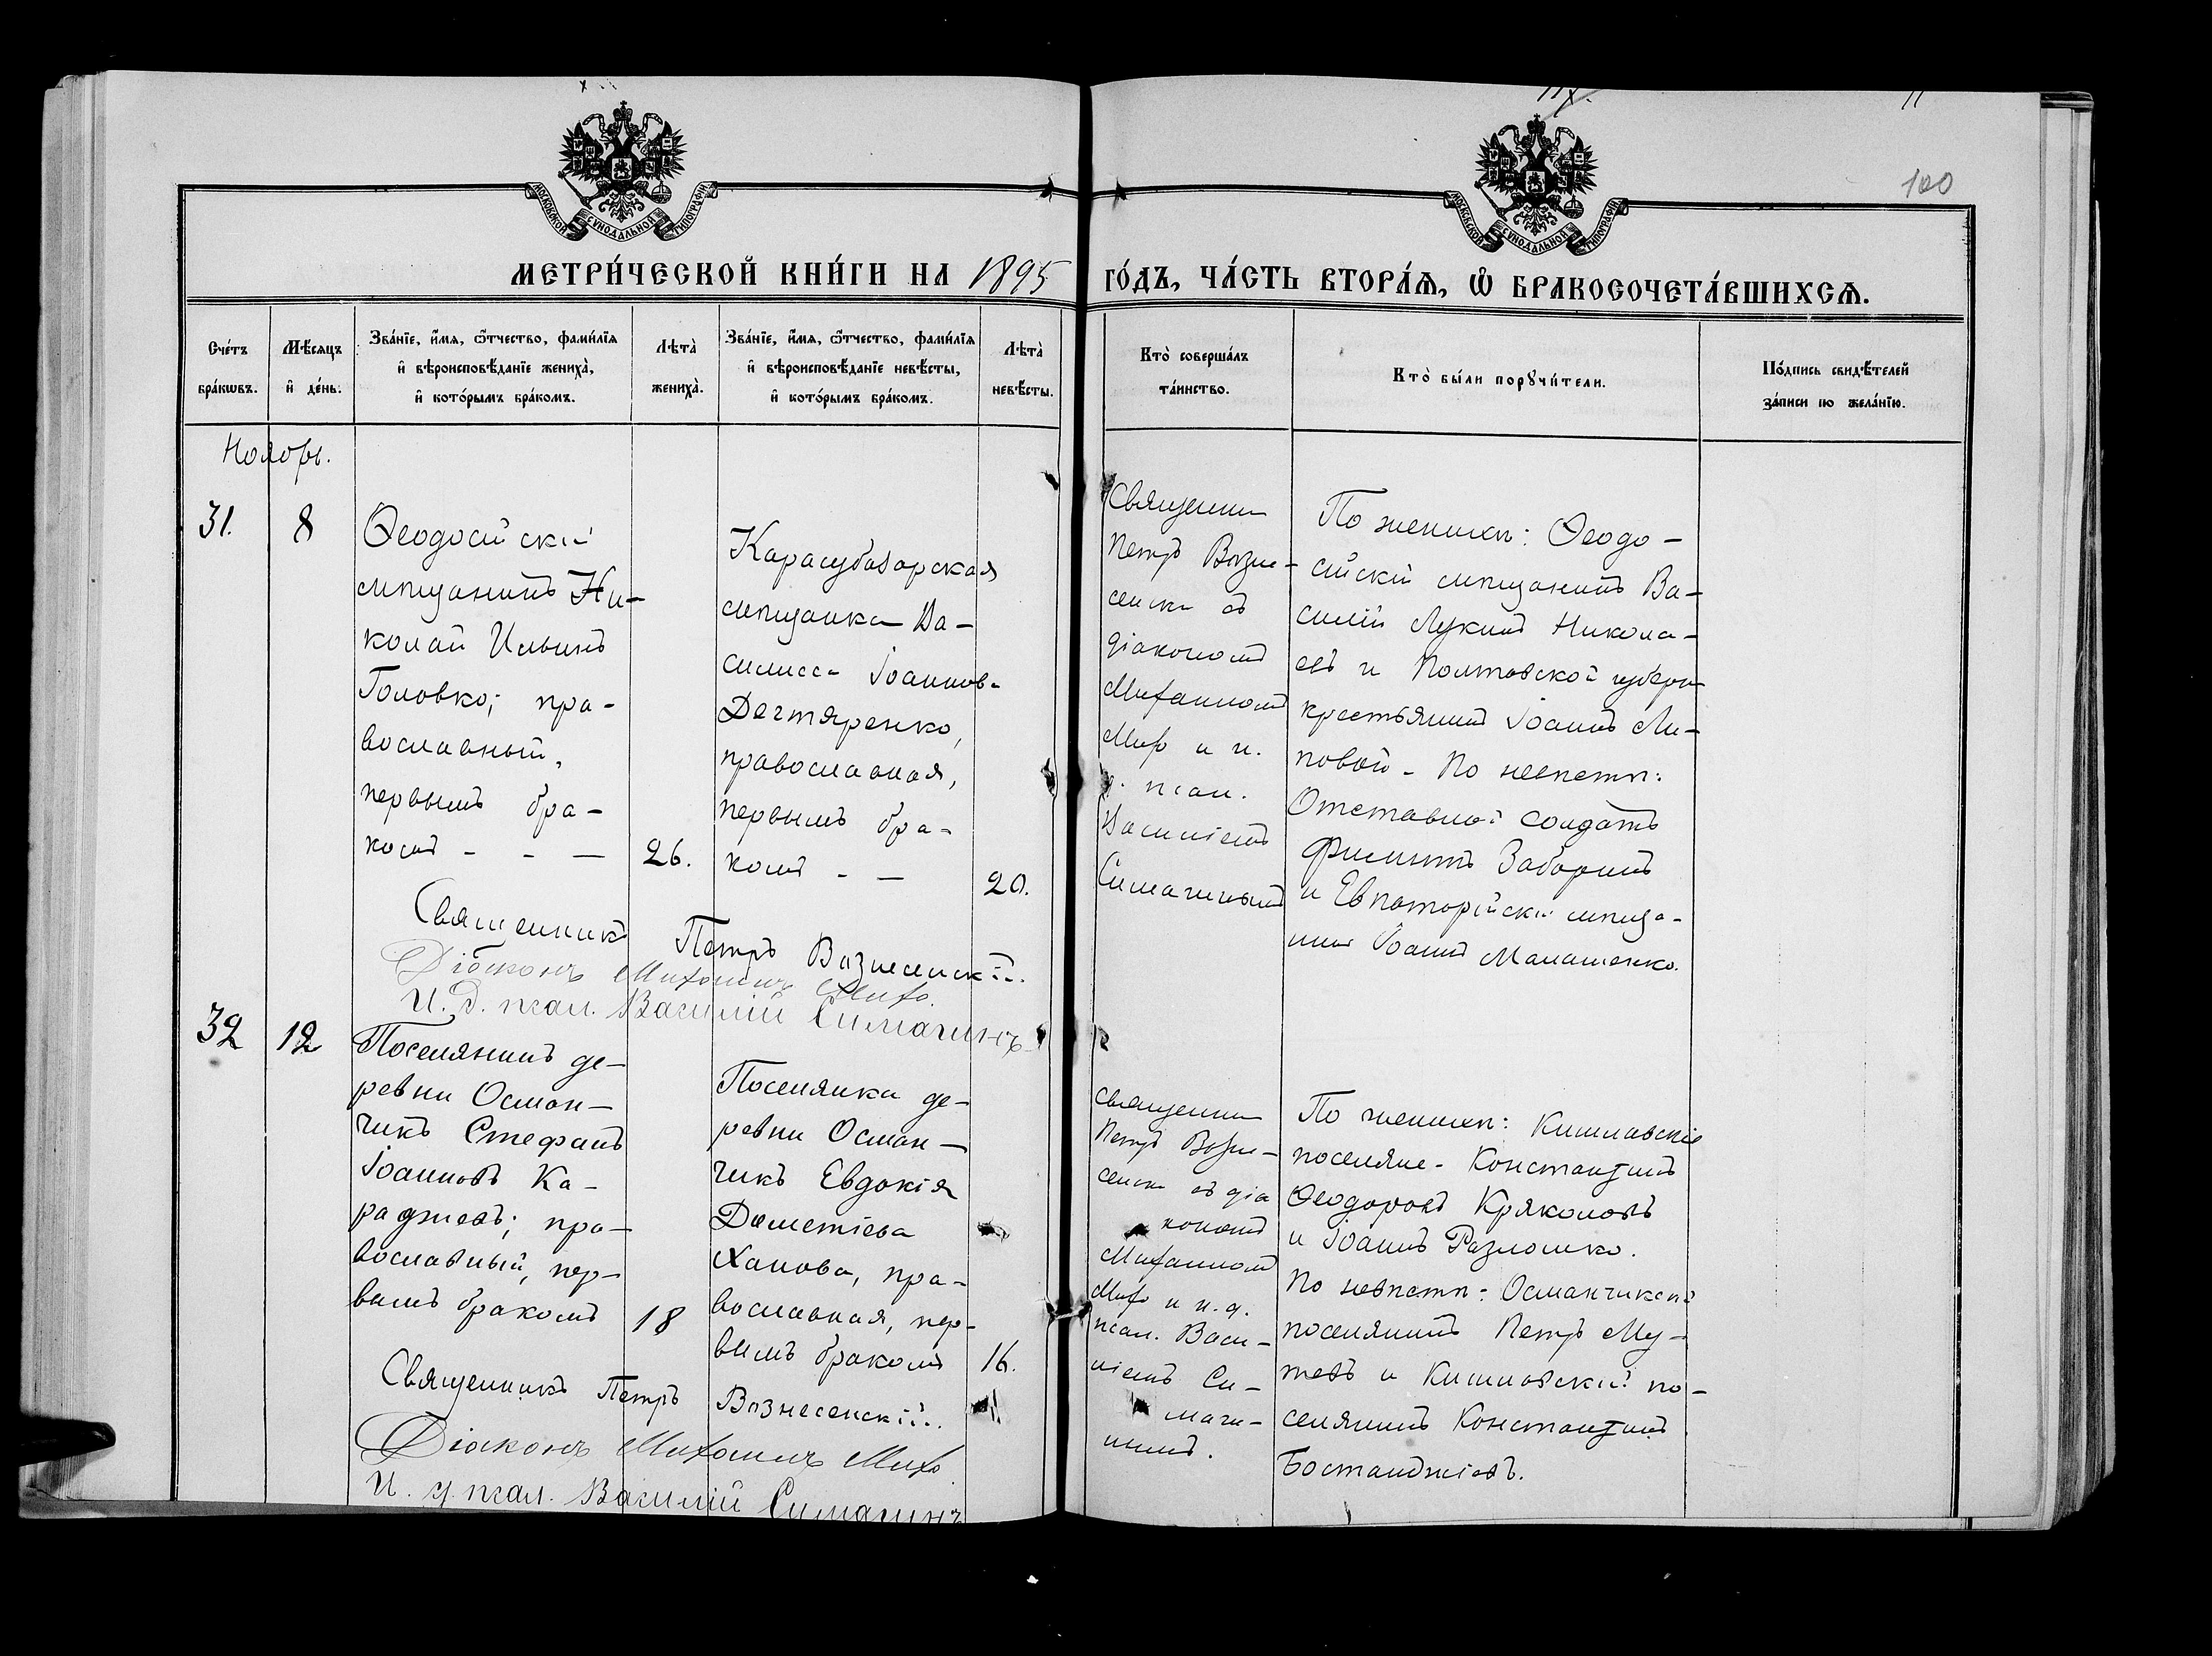 100
МОСКОВСКОЙ СУНОДАЛЬНОЙ ТИПОГРАФІИ
МОСКОВСКОЙ СУНОДАЛЬНОЙ ТИПОГРАФІИ
МЕТРИ́ЧЕСКОЙ КНИ́ГИ НА 1895 ГО́ДЪ, ЧА́СТЬ ВТОРА́Ѧ, Ѽ БРАКОСОЧЕТА́ВШИХСѦ.
Сче́тъ бра́кѡвъ.
Мѣ́сяцъ и де́нь.
Зва́нїе, и́мѧ, ѿчество, фами́лїѧ
и вѣроисповѣ́данїе жениха̀,
и кото́рымъ бра́комъ.
Лѣта̀ жениха̀.
Зва́нїе, и́мѧ, ѿчество, фами́лїѧ
и вѣроисповѣ́данїе невѣ́сты,
и кото́рымъ бра́комъ.
Лѣта̀ невѣ́сты.
Кто̀ соверша́лъ
та́инство.
Кто̀ бы́ли порꙋчи́тели.
По́дпись свидѣ́телей
за́писи по жела́нїю.
Ноябрь.
31.
8
Ѳеодосійскій
мѣщанинъ Ни-
колай Ильинъ
Головко; пра-
вославный,
первымъ бра-
комъ - - —
26.
Карасубазарская
мѣщанка Ва-
силисса Іоаннова
Дегтяренко,
православная,
первымъ бра-
комъ - —
20.
Священник
Петръ Возне-
сенски съ
діакономъ
Михаиломъ
Михо и и.
д. псал.
Василіемъ
Симагинымъ
По женихѣ: Ѳеодо-
сійскій мѣщанинъ Ва-
силій Лукинъ Никола-
евъ и Полтавской губерн
крестьянинъ Іоаннъ Ли-
повой - По невѣстѣ:
Отставной солдатъ
Филиппъ Заборинъ
и Евпаторійскій мѣща-
нинъ Іоаннъ Малашенко.
Священникъ Петръ Вознесенскій.
Діаконъ Михаилъ Михо.
И. д. псал. Василій Симагинъ
32
12
Поселянинъ де-
ревни Осман-
чикъ Стефанъ
Іоанновъ Ка-
раджевъ; пра-
вославный, пер-
вымъ бракомъ
18
Поселянка де-
ревни Осман-
чикъ Евдокія
Дометіева
Ханова, пра-
вославная, пер-
вымъ бракомъ
16.
Священник
Петръ Возне-
сенски съ діа
кономъ
Михаиломъ
Михо и и.д.
псал. Васи-
ліемъ Си-
маги-
нымъ.
По женихѣ: Кишлавскіе
поселяне - Константинъ
Ѳеодоровъ Кряколовъ
и Іоаннъ Разлошко.
По невѣстѣ: Османчикскій
поселянинъ Петръ Му-
тевъ и Кишлавскій по-
селянинъ Константинъ
Бостанджіевъ.
Священникъ Петръ Вознесенскій.
Діаконъ Михаилъ Михо
И. д. псал. Василій Симагинъ